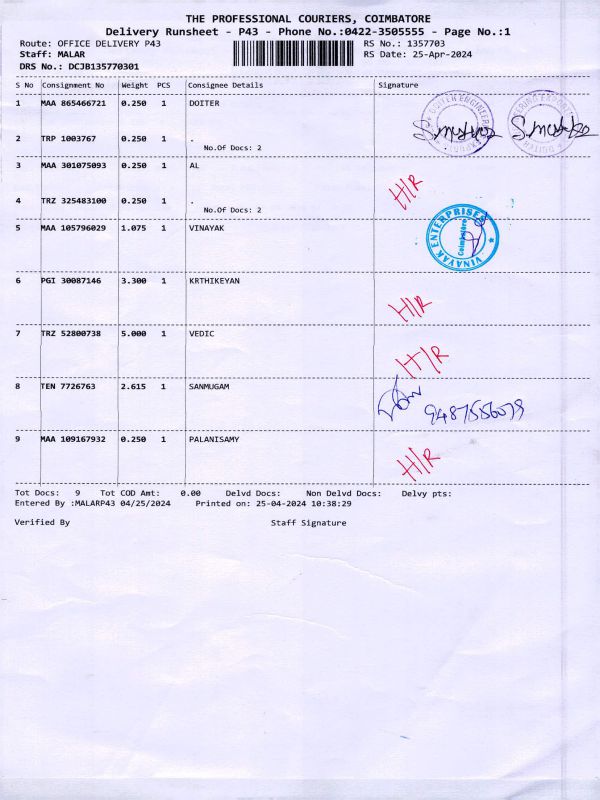 THE PROFESSIONAL COURIERS, COIMBATORE
Delivery Runsheet - P43 - Phone No.:0422-3505555 - Page No.:1
Route: OFFICE DELIVERY P43 RS No.: 1357703
Staff: MALAR RS Date: 25-Apr-2024
DRS No.: DCJB135770301
S No Consignment No Weight PCS Consignee Details Signature
1 MAA 865466721 0.250 1 DOITER
2 TRP 1003767 0.250 1 .
No.Of Docs: 2
3 MAA 301075093 0.250 1 AL
H/R
4 TRZ 325483100 0.250 1 .
No.Of Docs: 2
5 MAA 105796029 1.075 1 VINAYAK
VINAYAK ENTERPRISES
Coimbatore
6 PGI 30087146 3.300 1 KRTHIKEYAN
H/R
7 TRZ 52800738 5.000 1 VEDIC
H/R
8 TEN 7726763 2.615 1 SANMUGAM
9 MAA 109167932 0.250 1 PALANISAMY
H/R
Tot Docs: 9 Tot COD Amt: 0.00 Delvd Docs: Non Delvd Docs: Delvy pts:
Entered By :MALARP43 04/25/2024 Printed on: 25-04-2024 10:38:29
Verified By Staff Signature